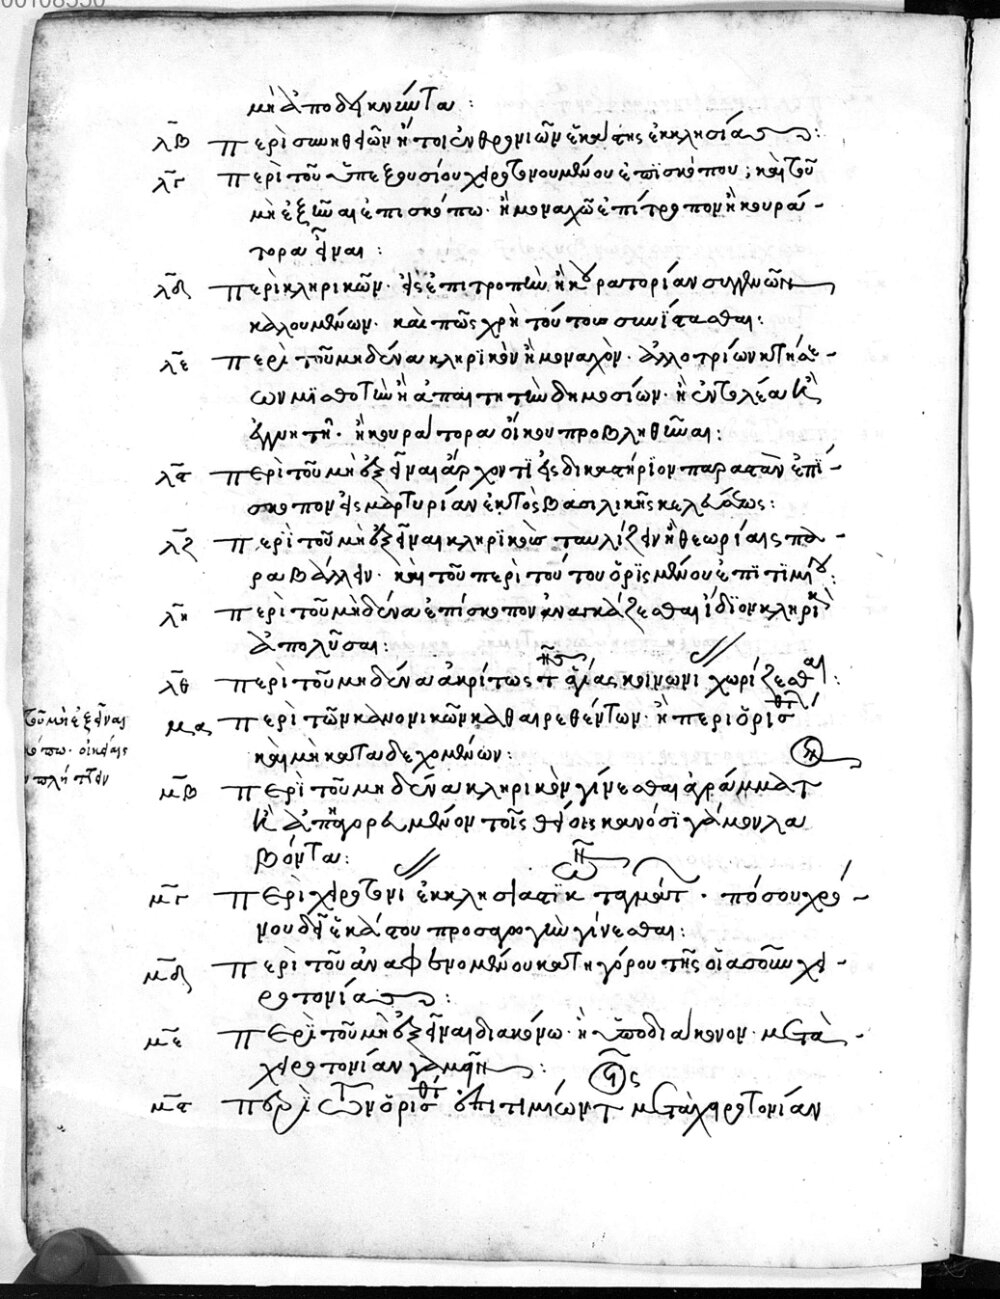 00108550
μὴ ἀποδεικνύντα :
λβ περὶ συνηθειῶν ἤτοι ἐνθρονιῶν ἑκάστης ἐκκλησίας :
λγ περὶ τοῦ ὑπεξουσίου χειροτονουμένου ἐπισκόπου ; καὶ τοῦ
μὴ ἐξεῖναι ἐπισκόπω · ἢ μοναχῶ ἐπίτροπον ἢ κουρά-
τορα εἶναι :
λδ περὶ κληρικῶν · εἰς ἐπιτροπὴν ἢ κουρατορίαν συγγενῶν
καλουμένων · καὶ πῶς χρὴ τούτου συνίστασθαι :
λε περὶ τοῦ μηδένα κληρικὸν ἢ μοναχὸν · ἀλλοτρίων κτήσε-
ων μισθωτὴν ἢ ἀπαιτητὴν δημοσίων · ἢ ἐντολέα
δίκης · ἢ κουράτορα οἴκου προβληθῆναι :
λϛ περὶ τοῦ μὴ ἐξεῖναι ἄρχοντι εἰς δικαστήριον παριστᾶν ἐπί-
σκοπον εἰς μαρτυρίαν ἐκτὸς βασιλικῆς κελεύσεως :
λζ περὶ τοῦ μὴ ἐξεῖναι κληρικοὺς ταυλίζειν ἢ θεωρίαις πα-
ραβάλλειν · καὶ τοῦ περὶ τούτου ὁρισμένου ἐπιτιμίου :
λη περὶ τοῦ μηδένα ἐπίσκοπον ἀναγκάζεσθαι ἴδιον κληρικὸν
ἀπολῦσαι :
λθ περὶ τοῦ μηδένα ἀκρίτως τῆς ἁγίας κοινωνι χωρίζεσθαι :
μα περὶ τῶν κανονικῶν καθαιρεθέντων · ἢ περιορισθέντ
καὶ μὴ καταδεχομένων :
μβ περὶ τοῦ μηδένα κληρικὸν γίνεσθαι ἀγράμματ
ἢ ἀπηγορευμένον τοῖς θείοις κανόσι γάμον λα
βόντα :
μγ περὶ χειροτονι ἐκκλησιαστικ ταγμάτ · πόσου χρό-
νου δεῖ ἕκαστον προσαγωγὴν γίνεσθαι :
μδ περὶ τοῦ ἀναφυομένου κατηγόρου τῆς οἱασοῦν χει-
ροτονίας :
με περὶ τοῦ μὴ ἐξεῖναι διακόνω · ἢ ὑποδιακόνου · μετὰ
χειροτονίαν γαμεῖν :
μϛ περὶ τῶν ὁρισθέντ ἐπιτιμίων τ μετὰ χειροτονίαν
τοῦ μὴ ἐξεῖναι